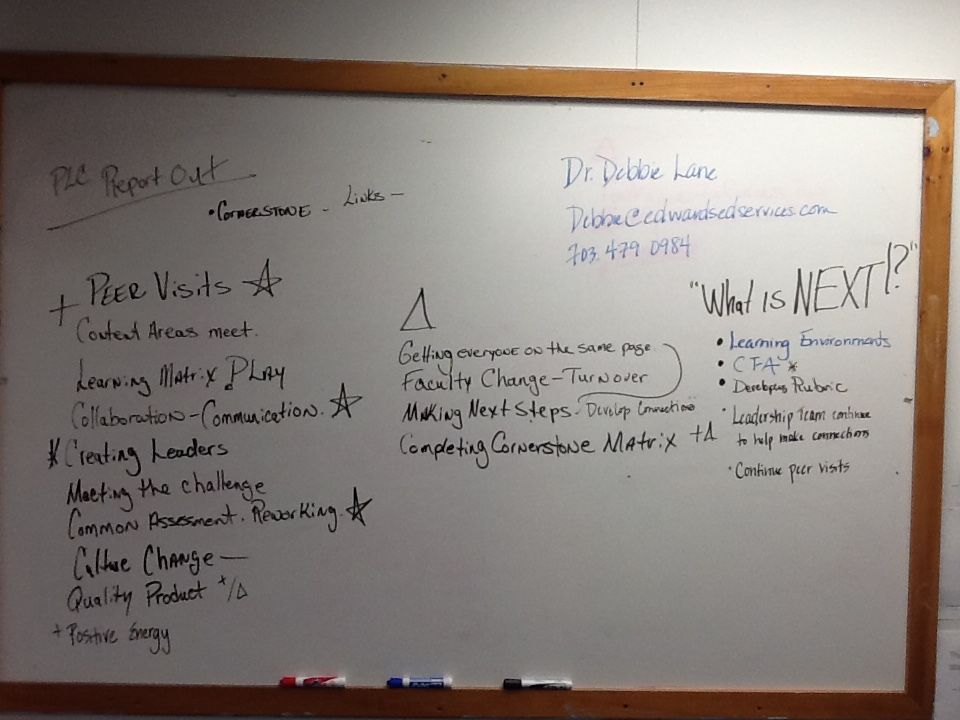 PLC Report Out
• CORNERSTONE - LINKS -
Dr. Debbie Lane
Debbie@edwardsedservices.com
703. 479 0984
+ PEER Visits ☆
Content Areas meet.
Learning Matrix PLAY
Collaboration - Communication. ☆
* Creating Leaders
Meeting the challenge
Common Assesment. Reworking. ☆
Cultue Change —
Quality Product +/Δ
+ Positive Energy
Δ
Getting everyone on the same page
Faculty Change - Turnover
Making Next Steps - Develop Connections
Completing Cornerstone Matrix +Δ
"What is NEXT!?"
• Learning Environments
• CFA *
• Rubric
• Leadership Team continue
to help make connections
• Continue peer visits